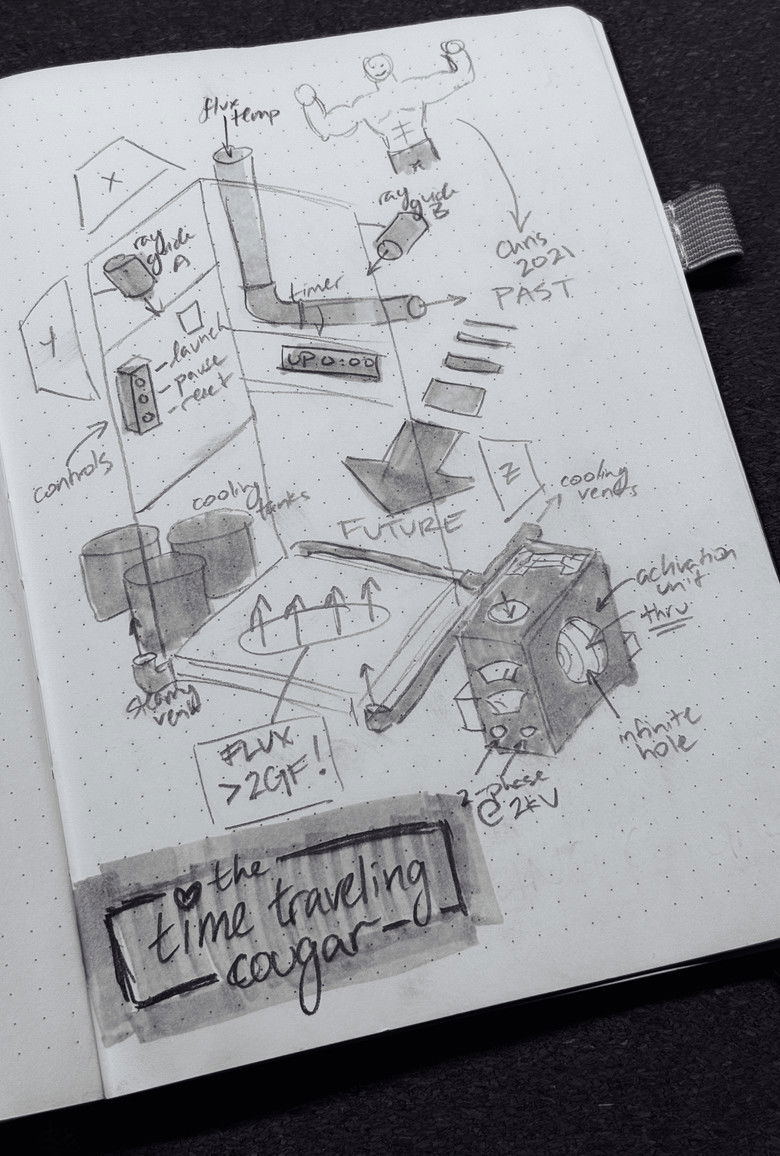 flux
temp
X
ray
guide
A
ray
guide
B
Chris
2021
PAST
timer
UP.0:00
Y
- launch
- pause
- reset
controls
Z
cooling
tanks
cooling
vents
FUTURE
activation
unit
thru
steamy
vent
infinite
hole
FLUX
>2GF!
2-phase
@ 2KV
the
time traveling
cougar